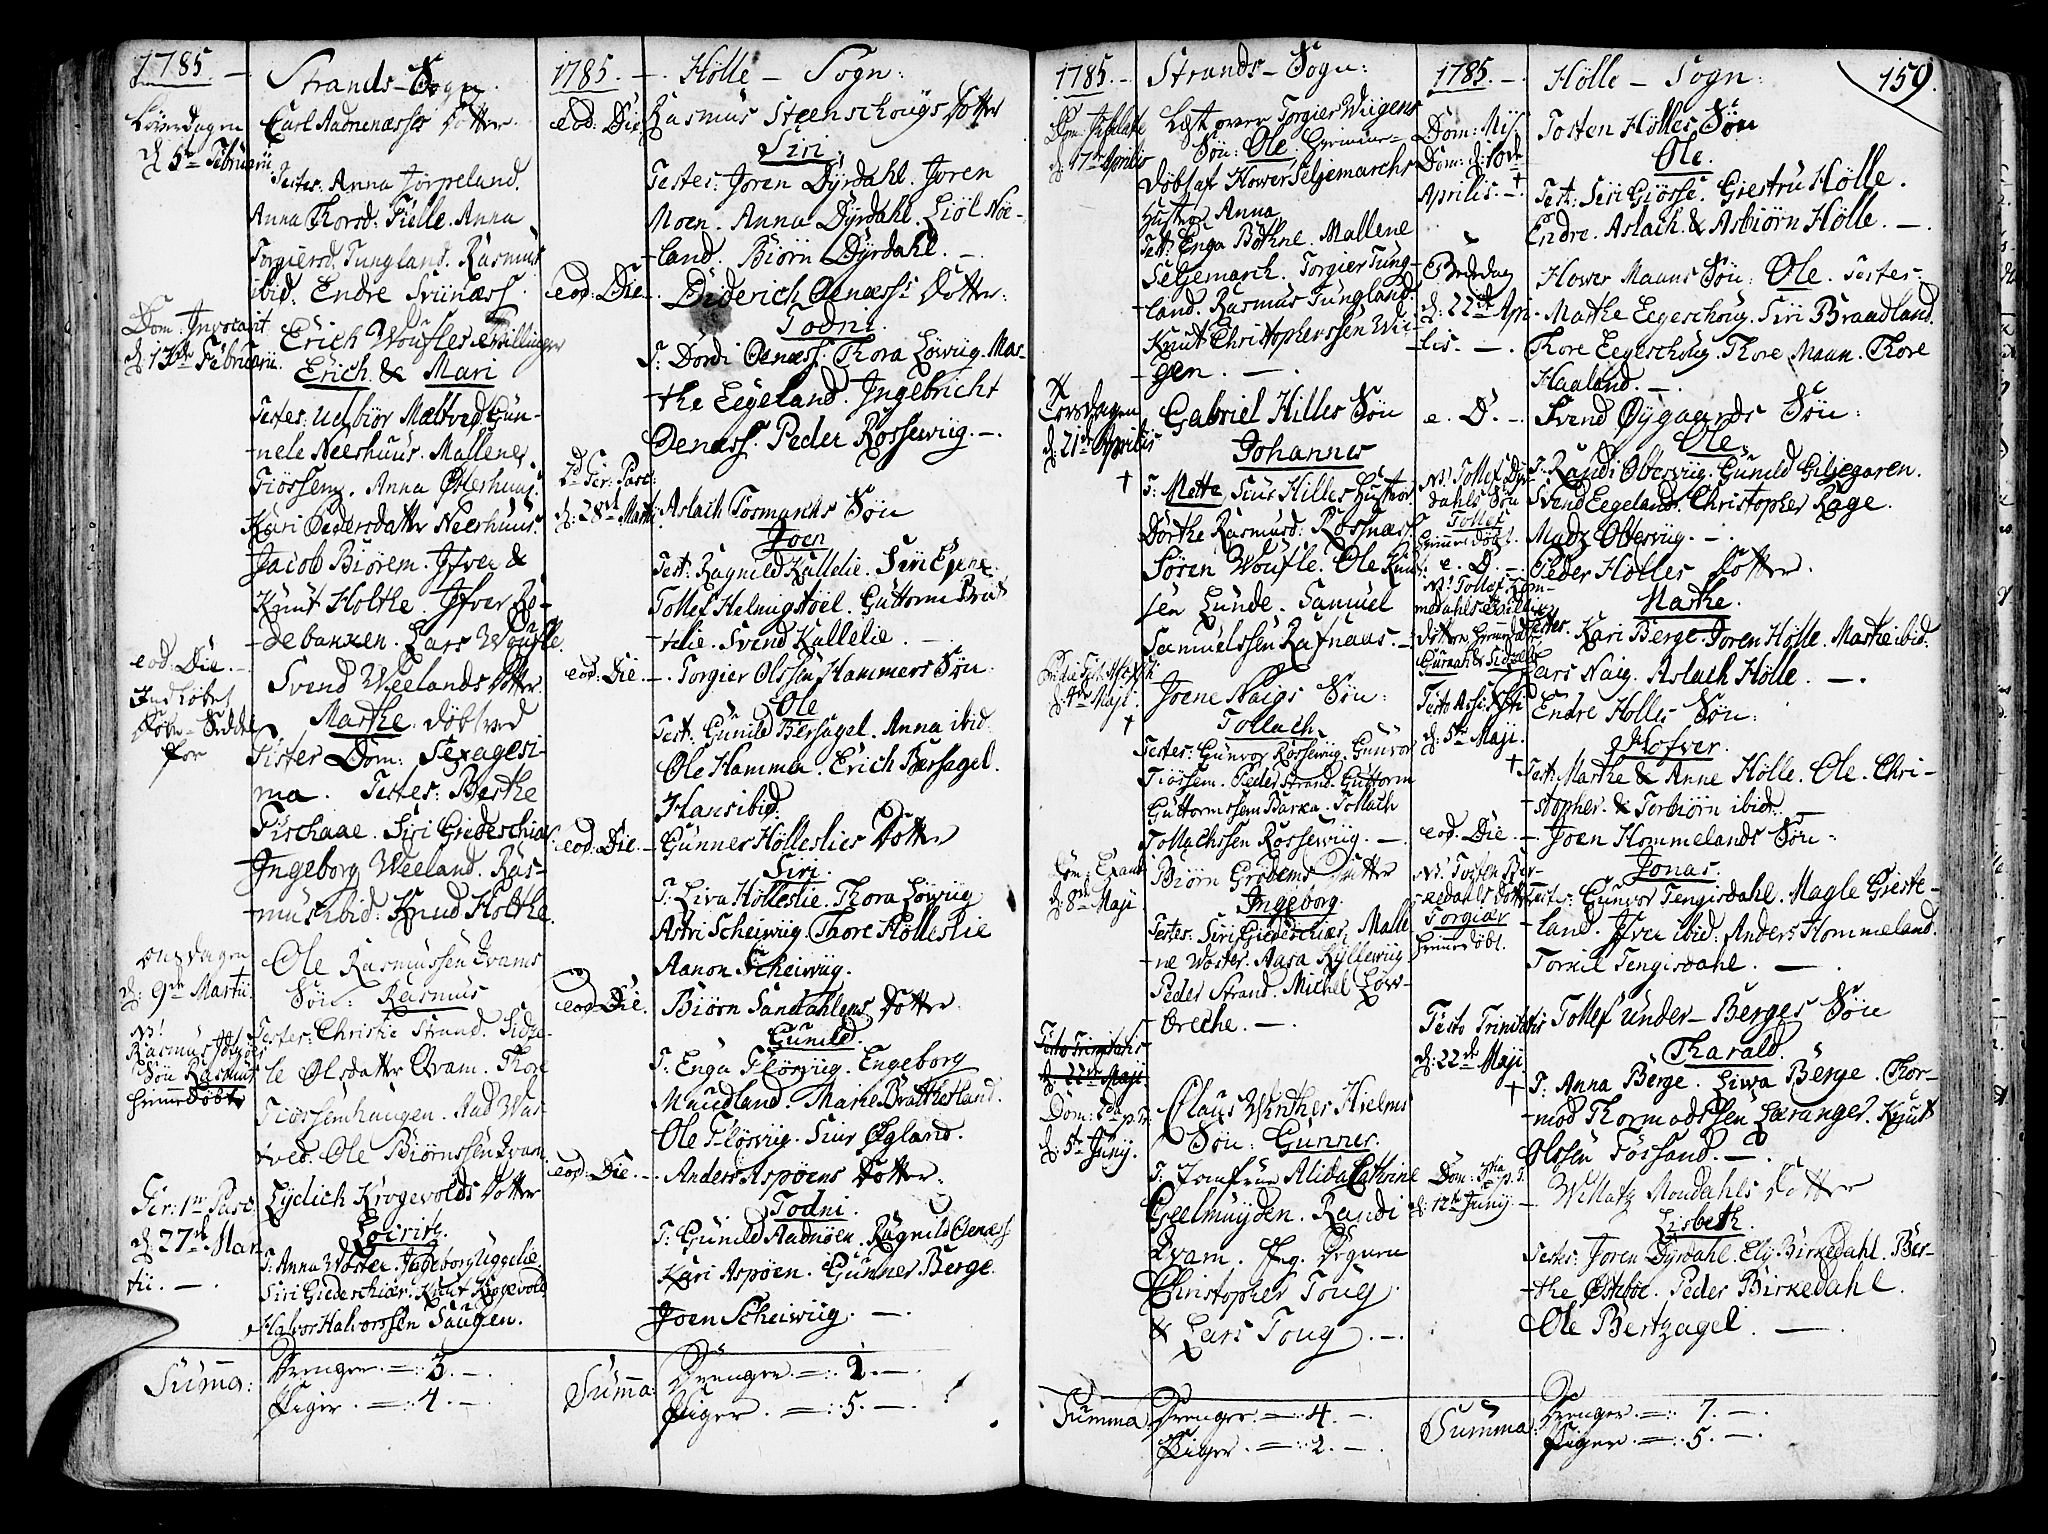 1785. -
Strands - Sogn.
Löverdagen
d: 5te Februarii
Carl Aadnenæsses Dotter.
Testes: Anna Jørpeland.
Anna Thorsd: Fielle. Anna
Torgiersd. Tungland. Rasmus
ibid: Endre Svünæss.
Dom: Invocavit
d: 13de Februarii.
Erich Woufles Tvillinger
Erich & Mari
Testes: Udbiør Mæltved Gün-
nele Neerhuus. Mallene
Tiössem. Anna Østerhuus.
Kari Pedersdatter Neerhuus.
Jacob Biørem. Jfver &
Knut Holthe. Jfver Re-
debanken. Lars Woufle.
eod: Die. -
Ind løbet
for
Svend Weelands Dotter
Marthe. døbt ved
Dom: Sexagesi-
ma. Testes: Berthe
Fischaae. Siri Giedeschiær
Ingeborg Weeland. Ras-
mus ibid: Knud Holthe.
Onsdagen
d: 9de Martii.
Ole Rasmussen Qvams
Søn: Rasmus
N!
Rasmus
Søn Rasmus
hiemedøbt
Testes: Christie Strand. Sidze-
le Olsdatter Qvam. Thore
Tiössemhaugen. Aad Wat-
ved. Ole Biørnssen Qvam.
Fer: 1me Pasc:
d: 27de Mar-
tii. -
Lydich Krogevolds Dotter
T: Anna Woster. Ingeborg Uggelie.
Siri Giedeschiær. Knut Krogevold
Halvor Halvorssen Taugen.
Summa:
Drenger. = : 3. -
Piger. = : 4. -
1785. -
Hölle - Sogn:
eod: Die
Rasmus Steenschougs Dotter
Siri.
Testes: Joren Dÿrdahl. Joren
Moen. Anna Dÿrdahl. Liöl Nöe-
land. Biørn Dÿrdahl. -
eod: Die -
Diderich Oenæss's Dotter:
Todni.
T: Dordi Oenæss. Thora Løwiig. Mar-
the Eegeland. Ingebricht
Oenæss. Peder Rossewiig. -
2d Fer: Pasc:
d: 28de Martii
Aslach Tosmarks Søn
Joen
Test: Ragnild Kallelie. Siri Egene.
Tollef Helmigstøel. Guttorm Brat-
telie. Svend Kallelie. -
eod: Die -
Torgier Olssen Hammers Søn.
Ole
Test: Gunild Bersagel. Anna ibid:
Ole Hamma. Erich Bersagel.
Hans ibid.
eod: Die. -
Gunner Hölleslies Dotter
Siri.
T: Liva Hölleslie. Thora Löwiig
Astri Scheiwiig. Thore Hölleslie
Aanon Scheiwiig.
eod: Die.
Biørn Sandahlens Dotter.
Gunild.
T: Enga Flörwiig. Engeborg
Maudland. Marie Brathetland.
Ole Flörwiig. Siur Øgland.
eod: Die. -
Anders Aspøens Dotter.
Todni.
T: Gunild Aadnöen. Ragnild Oenæss
Kari Aspöen. Gunner Berge.
Joen Scheiwiig. -
Summa:
Drenger. = : 2. -
Piger. = : 5. -
1785. -
Strands - Sogn:
Dom: Jubilate
d: 17de Aprilis
Læst over Torgier Wiigens
Søn: Ole. hiemme-
døbt af Hower Seljemarchs
Hustro Anna.
Test: Enga Böthne. Mallene
Seljemarch. Torgier Tung-
land. Rasmus Tungland.
Knut Christopherssen Wii-
gen. -
Torsdagen
d: 21de Aprilis
Gabriel Hilles Søn
Johannes
T: Mette Siur Hilles Hustro.
Dorthe Rasmusd: Rosnæss.
Søren Woufle. Ole Knud-
sen Lunde. Samuel
Samuelssen Rafnaas. -
d: 4de Maji.
Joene Naigs Søn:
Tollach.
Testes: Gunvor Rossewiig. Gunvor
Tiossem. Peder Strand. Guttorm
Guttormssen Barka. Tollach
Tollachssen Rossewiig. -
Dom: Exaudi
d: 8de Maji
Biørn Grødems Dotter
Ingeborg.
Testes: Siri Giedeschiær. Malle-
ne Woster. Aasa Kyllewiig
Peder Strand. Michel Löw-
breche. -
Festo Trinitatis
d: 22de Maji.
Dom: 2da p. Tr:
d: 5te Junij.
Claus Winther Hielms
Søn: Gunner.
T: Jomfrue Alida Cathrine
Geelmuyden. Randi
Qvam.
Christopher Toug.
& Lars Toug. -
Summa
Drenger. = : 4. -
Piger. = : 2. -
1785. -
Hölle - Sogn:
159.
Dom: Mis:
Dom: d: 10de
Aprilis. -
Tosten Hölles Søn
Ole.
Test: Siri Giösse. Giestru Hölle.
Endre. Aslach. & Asbiørn Hölle. -
Bededag
d: 22de Apri-
lis. -
Hower Maans Søn: Ole. Testes:
Marthe Eegeschoug. Siri Braadland.
Thore Eegeschoug. Thore Maan. Thore
Haaland. -
e. D. -
Svend Øygaards Søn:
Ole.
T: Randi Oberviig. Gunild Giljegaren.
Svend Eegeland. Christopher Rage.
Madz Oberviig. -
N! Tollef Dÿr-
dahls Søn
Tollef
hiemedøbt.
e. D. -
Peder Hölles Dotter.
Marthe.
Testes: Kari Berge. Joren Hölle. Marthe ibid:
Lars Naig. Aslach Hölle. -
Festo Ascens: Xsti
d: 5te Maji.
Endre Holles Søn:
Hofver.
Test: Marthe & Anne Hölle. Ole. Chri-
stopher. & Torbiørn ibid:
eod: Die. -
Joen Hommelands Søn:
Jonas.
Testes: Gunvor Tengisdahl. Magle Grete-
land. Jfver ibid: Anders Hommeland.
Torkil Tengisdahl. -
N! Tosten
Torgiær
hiemedøbt.
Festo Trinitatis
d: 22de Maji
Tollef Under-Berges Søn
Tharald.
T: Anna Berge. Liwa Berge. Thor-
mod Thormodssen Leranger. Knut
Olssen Tossand. -
Dom: 3tia p. T.
d: 12te Junij -
Willatz Mondahls Dotter
Lisbeth.
Testes: Joren Dÿrdahl. Eli Birkedahl. Ber-
the Østebøe. Peder Birkedahl.
Ole Bertzagel. -
Summa:
Drenger. = : 7. -
Piger. = : 5. -